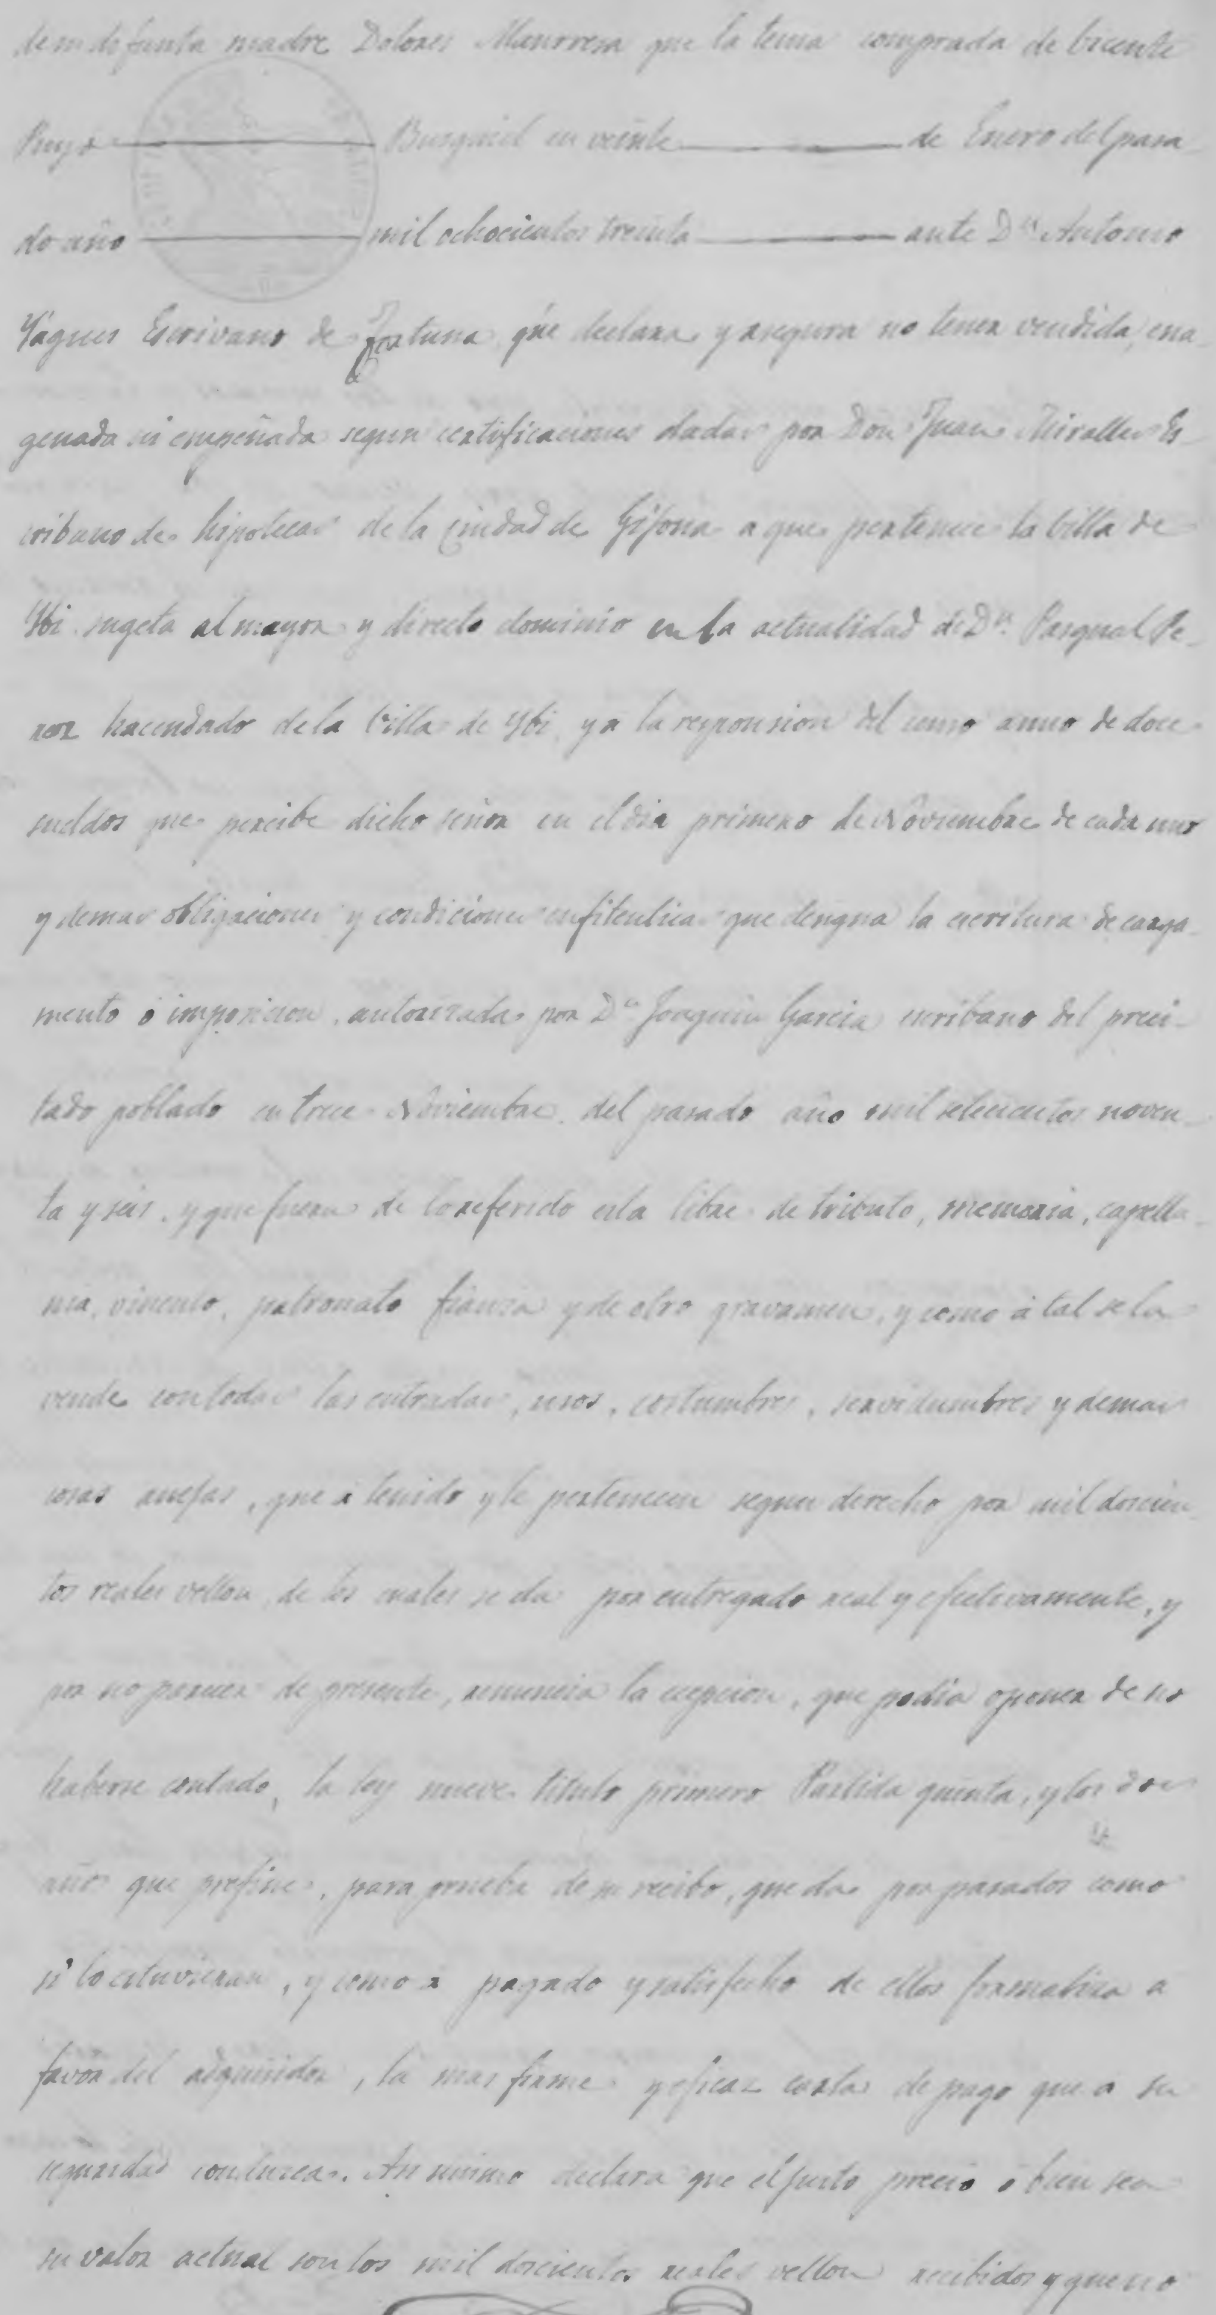 de su difunta madre Dolores Maurresa que la tenia comprada de bicente
Payá Burguiel en veinte de Enero del pasa-
do año mil ochocientos treinta ante Dⁿ Antonio
Yágues Escrivano de Fortuna, que declara y asegura no tener vendida, ena-
genada ni empeñada segun certificaciones dadas por Don Juan Miralles Es-
cribano de hipotecas de la Ciudad de Gijona a que pertenece la billa de
Ybi sugeta al mayor y directo dominio en la actualidad de Dⁿ Pasqual Pe-
rez hacendado de la Villa de Ybi, y a la responsion del censo annuo de doce
sueldos que percibe dicho señor en el dia primero de Noviembre de cada uno
y demas obligaciones y condiciones enfiteutica que designa la escritura de carga-
mento ó imposicion, autorizada por Dⁿ Joaquin Garcia escribano del preci-
tado poblado en trece Noviembre del pasado año mil setecientos noven-
ta y seis, y que fuera de lo referido esta libre de tributo, memoria, capella-
nia, vinculo, patronato fianza y de otro gravamen, y como á tal se la
vende con todas las entradas, usos, costumbres, servidumbres y demas
cosas anejas, que a tenido y le pertenecen segun derecho por mil doscien-
tos reales vellon, de los cuales se da por entregado real y efectivamente, y
por no parecer de presente, renuncia la ecepcion, que podia oponer de no
haberse contado, la ley nueve titulo primero Partida quinta, y los dos
años que prefine, para prueba de su recibo, que da por pasados como
si lo estuvieran, y como a pagado y satisfecho de ellos formaliza a
favor del adquiridor, la mas firme y eficaz carta de pago que a su
seguridad conduzca. Asi mismo declara que el justo precio o bien sea
su valor actual son los mil doscientos reales vellon recibidos y que no